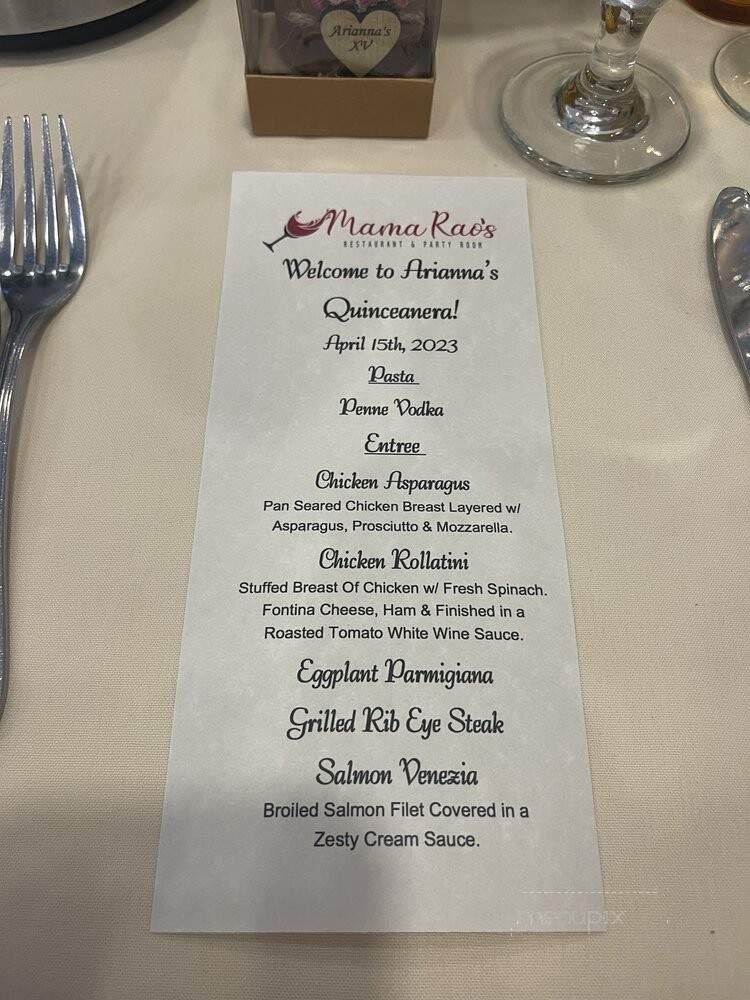 Arianna's
XV
Mama Rao's
RESTAURANT & PARTY ROOM
Welcome to Arianna's
Quinceanera!
April 15th, 2023
Pasta
Penne Vodka
Entree
Chicken Asparagus
Pan Seared Chicken Breast Layered w/
Asparagus, Prosciutto & Mozzarella.
Chicken Rollatini
Stuffed Breast Of Chicken w/ Fresh Spinach.
Fontina Cheese, Ham & Finished in a
Roasted Tomato White Wine Sauce.
Eggplant Parmigiana
Grilled Rib Eye Steak
Salmon Venezia
Broiled Salmon Filet Covered in a
Zesty Cream Sauce.